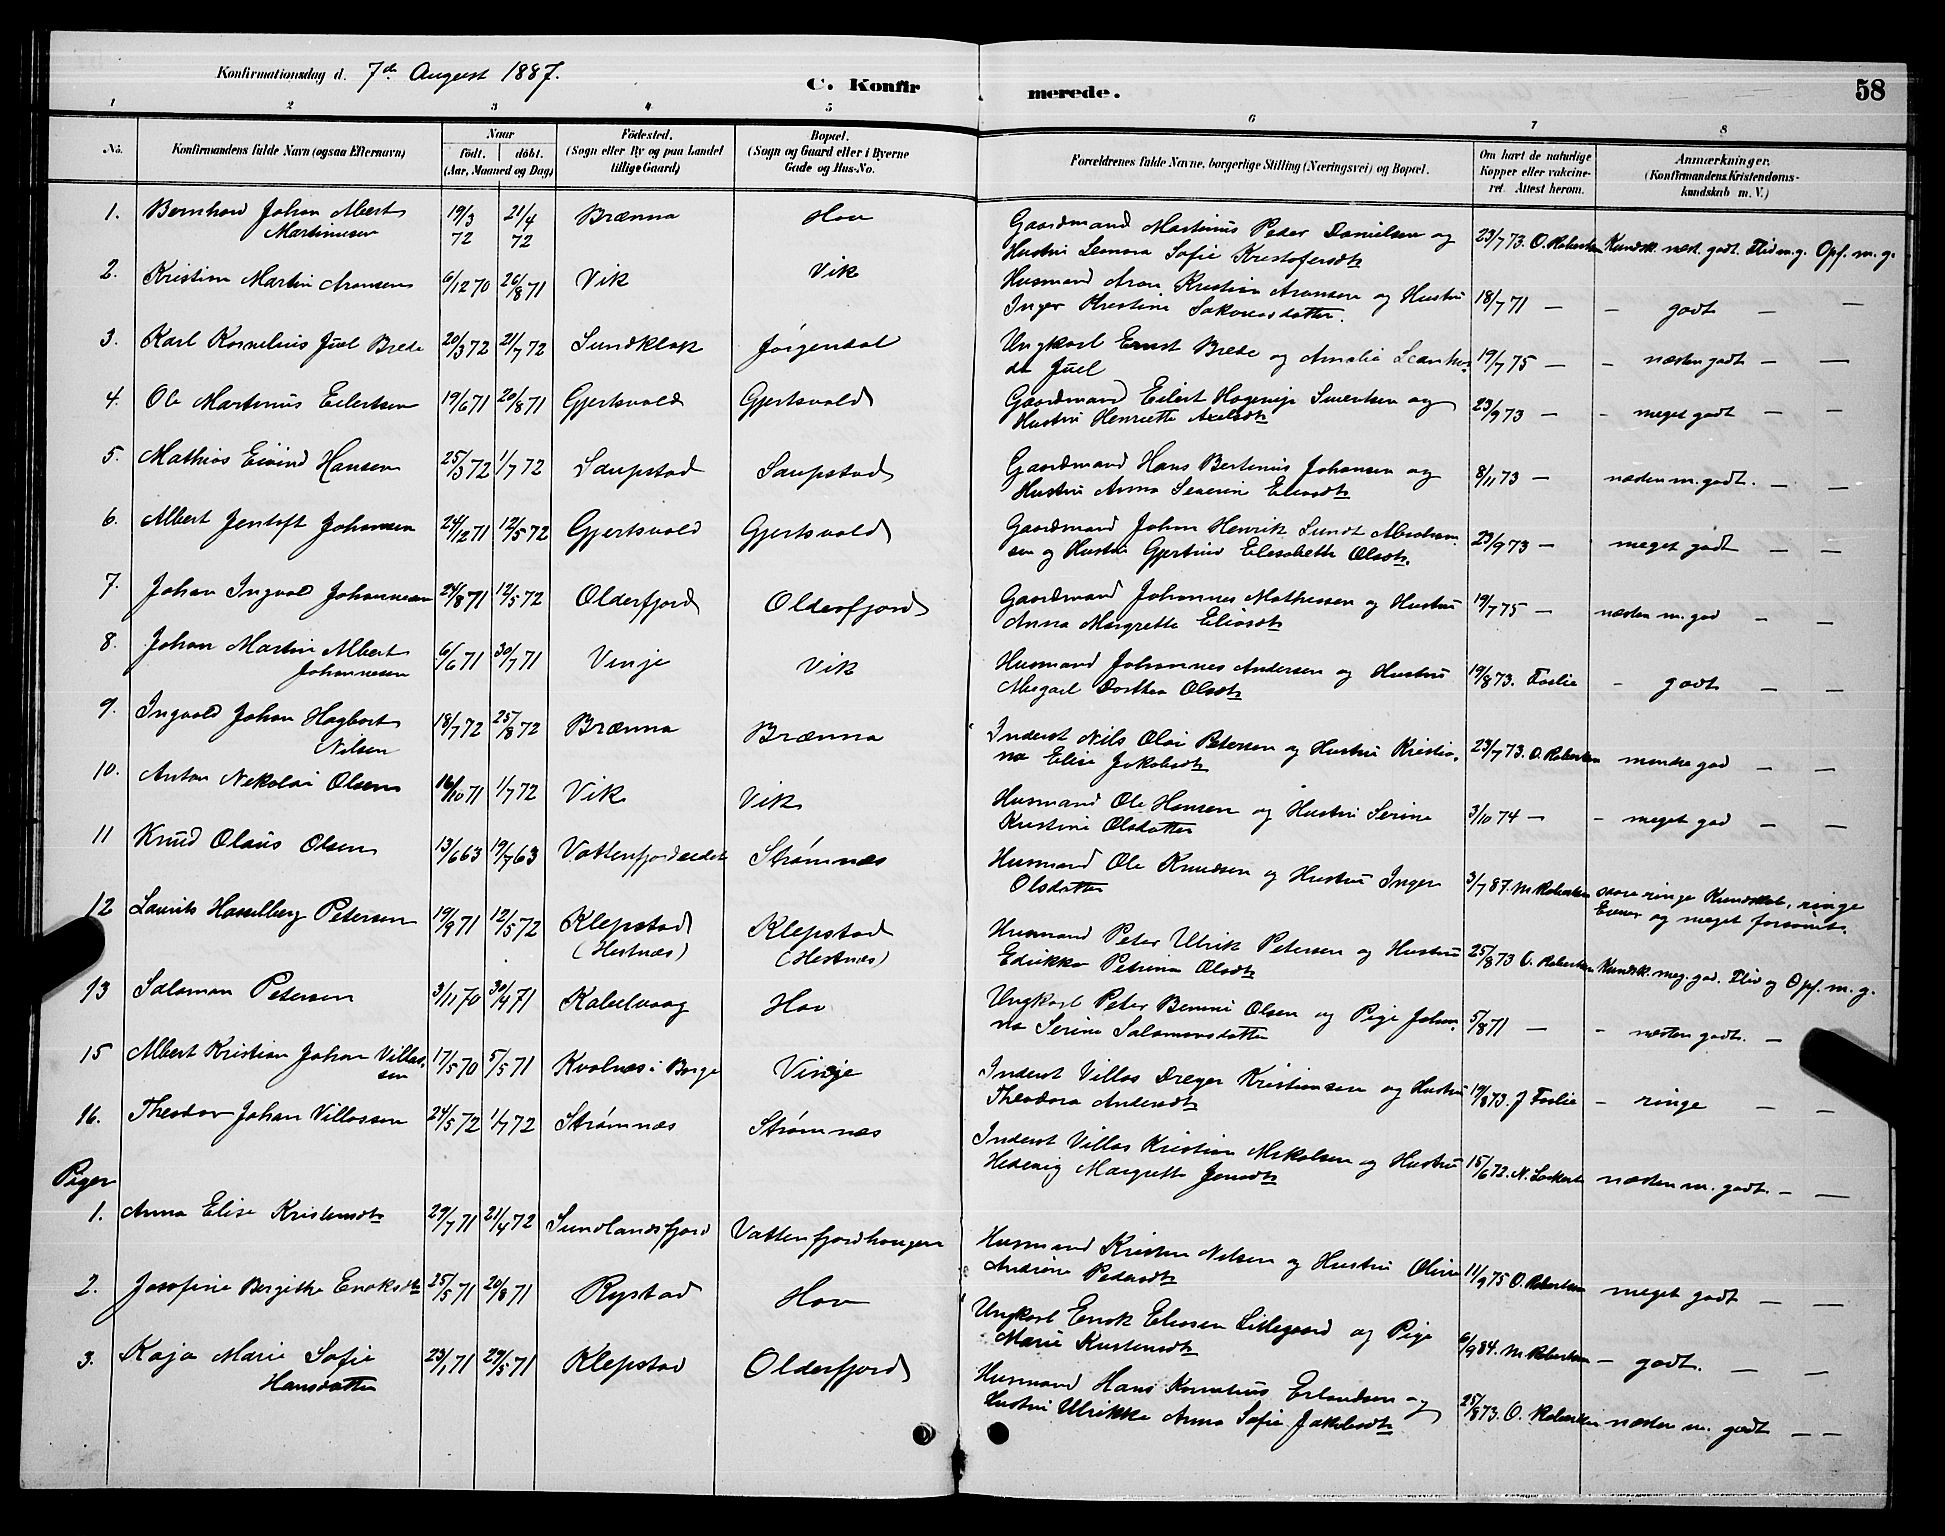 Konfirmationsdag d. 7de August 1887.
C. Konfirmerede.
58
1 2 3 4 5 6 7 8
No.
Konfirmandens fulde Navn (ogsaa Efternavn)
Naar
födt. döbt.
(Aar, Maaned og Dag)
Födested.
(Sogn eller By og paa Landet
tillige Gaard)
Bopæl.
(Sogn og Gaard eller i Byerne
Gade og Hus-No.
Forældrenes fulde Navne, borgerlige Stilling (Næringsvei) og Bopæl.
Om havt de naturlige
Kopper eller vakcine-
ret. Attest herom.
Anmærkninger.
(Konfirmandens Kristendoms-
kundskab m. V.)
1. Bernhard Johan Albert
Martinusen
19/3 72 21/4 72 Brænna Hov
Gaardmand Martinus Peder Danielsen og
Hustru Lenora Sofie Kristofersdtr
23/7 73. O. Robertsen Kundsk. næst. godt. Flid m.g. Opf. m. g.
2. Kristian Martin Aronsen 6/12 70 26/8 71 Vik Vik
Husmand Aron Kristian Aronsen og Hustru
Inger Kristine Sakariasdatter.
18/7 71 — — godt — —
3. Karl Kornelius Juel Brede 20/3 72 21/7 72 Sundklak Jörgendal
Ungkarl Ernst Brede og Amalia Leanthe
da Juel
19/7 75 — — næsten godt — —
4. Ole Martinus Eilertsen 19/6 71 20/8 71 Gjertsvold Gjertsvold
Gaardmand Eilert Hagerup Sivertsen og
Hustru Henriette Axelsdtr
23/9 73 — — meget godt — —
5. Mathias Eivind Hansen 25/3 72 1/7 72 Saupstad Saupstad
Gaardmand Hans Bertinus Johansen og
Hustru Anna Severine Eliasdtr
8/11 73 — næsten m. godt. — —
6. Albert Jentoft Johansen 24/12 71 12/5 72 Gjertsvold Gjertsvold
Gaardmand Johan Henrik Sundt Abraham-
sen og Hustru Gjertine Elisabeth Olsdtr.
23/9 73 — meget godt — —
7. Johan Ingvald Johannesen 24/8 71 12/5 72 Olderfjord Olderfjord
Gaardmand Johannes Mathessen og Hustru
Anna Margrette Eliasdtr
19/7 75 — næsten m. god — —
8. Johan Martin Albert
Johannesen
6/6 71 30/7 71 Vinje Vik
Husmand Johannes Andersen og Hustru
Abigael Dorthea Olsdtr
19/8 73. Foslie — godt — —
9. Ingvald Johan Hagbart
Nilsen
18/7 72 25/8 72 Brænna Brænna
Inderst Nils Olai Petersen og Hustru Kristia-
na Elise Jakobsdtr
23/7 73. O. Robertsen mindre god — —
10. Anton Nekolai Olsen 16/10 71 1/7 72 Vik Vik
Husmand Ole Hansen og Hustru Serine
Kristine Olsdatter
3/10 74 — — meget god — —
11 Knud Olaus Olsen 13/6 63 19/7 63 Vattenfjordeidet Strømnæs
Husmand Ole Knudsen og Hustru Inger
Olsdatter
3/7 87. M. Robertsen svare ringe Kundskab, ringe
Evner og meget forsømt.
12 Laurits Hasselberg Petersen 19/9 71 12/5 72 Klepstad
(Hestnæs)
Klepstad
(Hestnæs)
Husmand Peter Ulrik Petersen og Hustru
Edrikka Petrina Olsdtr
25/8 73 O. Robertsen Kundsk. meg. god. Flid og Opf. m. g.
13 Salamon Petersen 3/11 70 30/4 71 Kabelvaag Hov
Ungkarl Peter Benoni Olsen og Pige Johan-
na Serine Salamonsdatter
5/8 71 — — næsten godt. —
15 Albert Kristian Johan Villas-
sen
17/5 70 5/5 71 Kvalnæs i Borge Vinje
Inderst Villas Dreyer Kristiansen og Hustru
Theodora Andersdtr
19/8 73. J Foslie — ringe — —
16. Theodor Johan Villassen 24/5 72 1/7 72 Strømnæs Strømnæs
Inderst Villas Kristian Nekolsen og Hustru
Hedevig Margrette Jonsdtr
15/6 72. N. Lockert næsten m. godt. — —
Piger
1. Anna Elise Kristensdtr 29/7 71 21/4 72 Sundlandsfjord Vattenfjordhaugen
Husmand Kristen Nilsen og Hustru Oline
Andrine Pedersdtr
11/9 75 O. Robertsen meget godt — —
2. Josefine Bergithe Enoksdtr 25/5 71 20/8 71 Rystad Hov
Ungkarl Enok Eliasen Littlegaard og Pige
Marie Kristensdtr
6/9 84. M. Robertsen — godt. — —
3. Kaja Marie Sofie
Hansdatter
23/1 71 29/5 71 Klepstad Olderfjord
Husmand Hans Kornelius Erlandsen og
Hustru Ulrikke Anna Sofie Jakobsdtr
25/8 73. O. Robertsen næsten m. godt — —